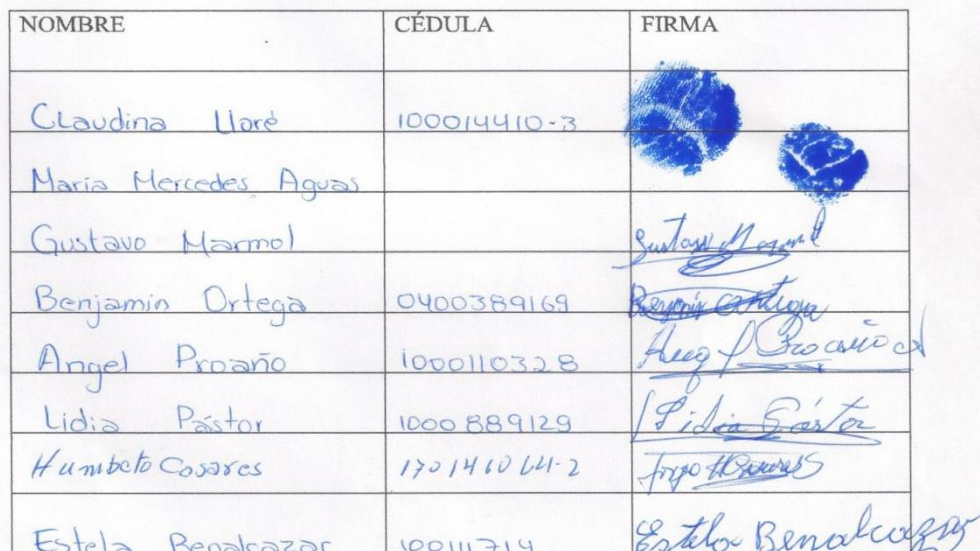 NOMBRE CÉDULA FIRMA
Claudina Lloré 100014410-3
Maria Mercedes Aguas
Gustavo Marmol Gustavo Marmol
Benjamin Ortega 0400389169 Benjamin Ortega
Angel Proaño 1000110328 Proaño
Lidia Pástor 1000889129 Lidia Pástor
Humbeto Cosares
Estela Benalcazar 100111714 Estela Benalcazar